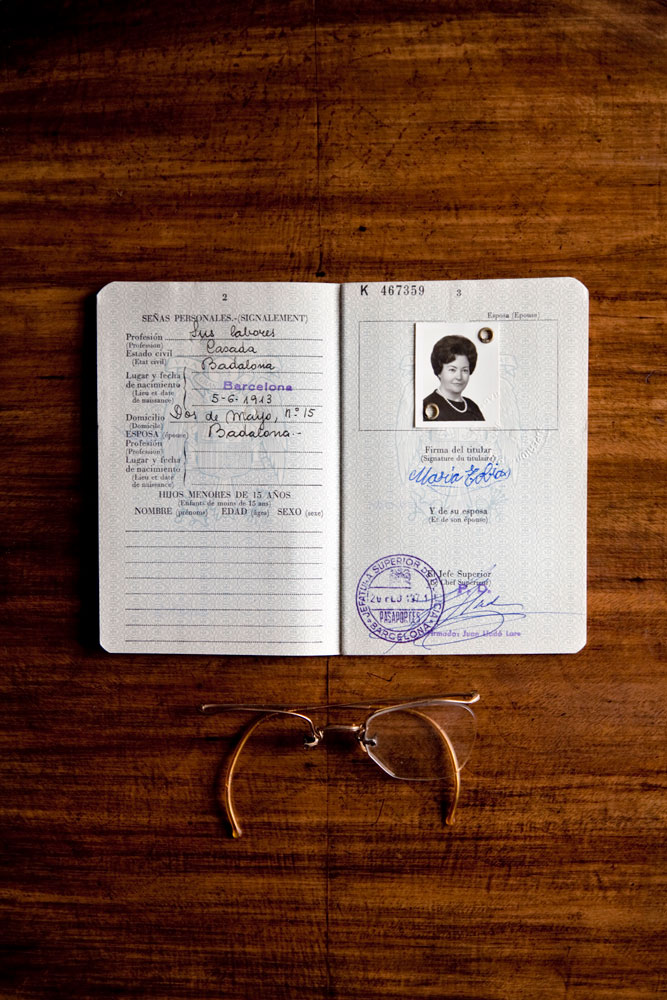 2
SEÑAS PERSONALES.-(SIGNALEMENT)
Profesión Sus labores
(Profession)
Estado civil Casada
(Etat civil)
Lugar y fecha Badalona
de nacimiento Barcelona
(Lieu et date
de naissance) 5-6-1913
Domicilio Dos de Mayo, n.º 15
(Domicile)
ESPOSA (épouse) Badalona.-
Profesión
(Profession)
Lugar y fecha
de nacimiento
(Lieu et date
de naissance)
HIJOS MENORES DE 15 AÑOS
(Enfants de moins de 15 ans)
NOMBRE (prénoms) EDAD (âges) SEXO (sexe)
K 467359 3
Esposa (Épouse)
Firma del titular
(Signature du titulaire)
María Tobias
Y de su esposa
(Et de son épouse)
El Jefe Superior
Chef Supérieur)
P. O.
JEFATURA SUPERIOR DE
PASAPORTES
BARCELONA
Firmado: Juan Lladó